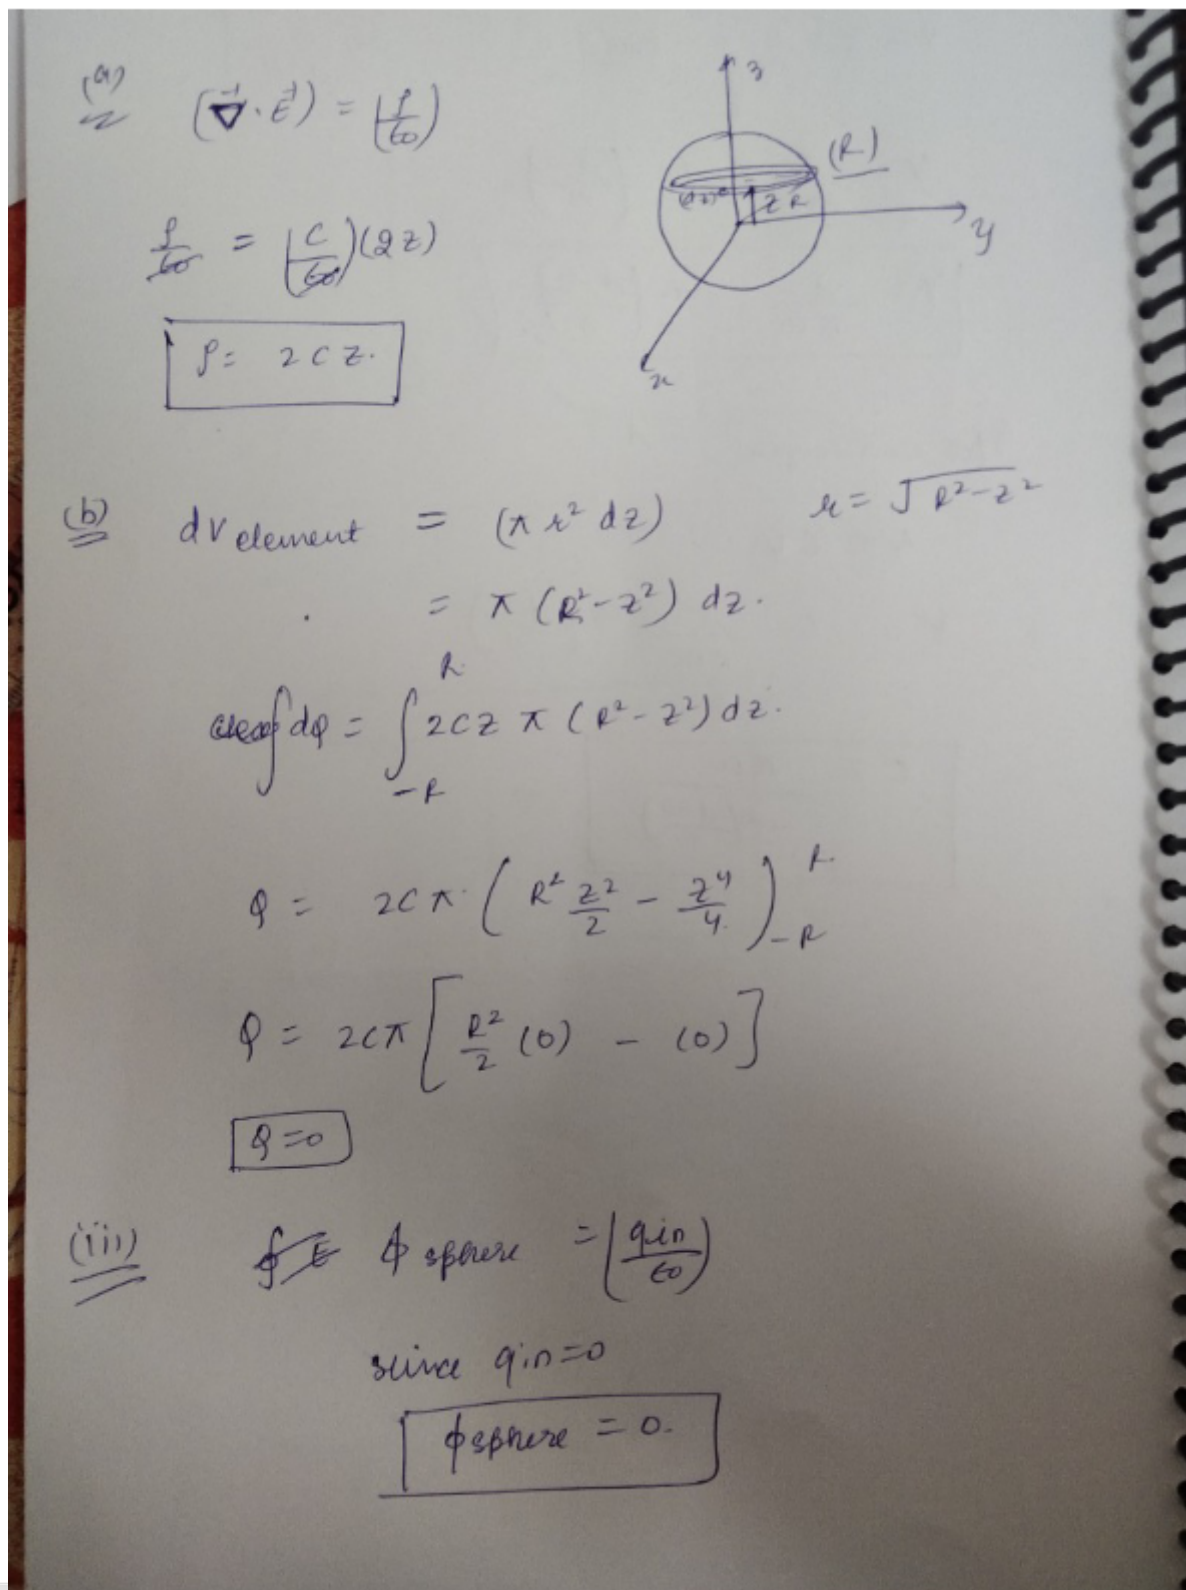 (a) (∇⃗·E⃗) = (ρ/ε0)
z
(R)
(dz)
z R
y
x
ρ/ε0 = (C/ε0)(2z)
ρ = 2Cz.
(b) dV element = (π r² dz) r = √R²-z²
= π (R²-z²) dz.
∫dQ = ∫_{-R}^{R} 2Cz π (R²-z²) dz.
Q = 2Cπ (R² z²/2 - z⁴/4)_{-R}^{R}
Q = 2Cπ [R²/2 (0) - (0)]
Q=0
(iii) ∮E ϕ sphere = (qin/ε0)
since qin=0
ϕ sphere = 0.